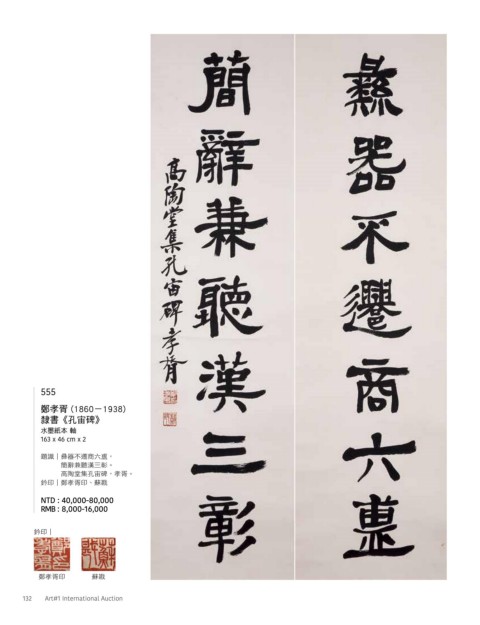 彝器不遷商六疐
簡辭兼聽漢三彰
高陶堂集孔宙碑 孝胥
555
鄭孝胥 (1860－1938)
隸書《孔宙碑》
水墨紙本 軸
163 x 46 cm x 2
題識｜彝器不遷商六疐。
簡辭兼聽漢三彰。
高陶堂集孔宙碑，孝胥。
鈐印｜鄭孝胥印、蘇戡
NTD : 40,000-80,000
RMB : 8,000-16,000
鈐印｜
鄭孝胥印
蘇戡
132 Art#1 International Auction